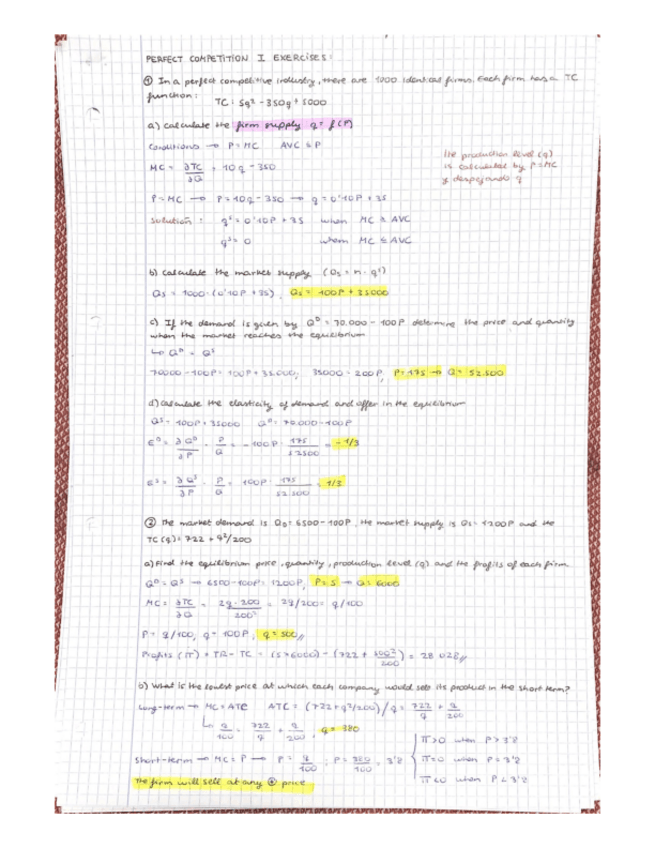 PERFECT COMPETITION I EXERCISES:
① In a perfect competitive industry, there are 1000 identical firms. Each firm has a TC
function:
TC = 5q² - 350q + 5000
a) calculate the firm supply q = f(P)
Conditions → P = MC AVC ≤ P
MC = ∂TC/∂Q = 10q - 350
the production level (q)
is calculated by P=MC
y despejando q
P = MC → P = 10q - 350 → q = 0'10P + 35
Solution: qˢ = 0'10P + 35 when MC ≥ AVC
qˢ = 0 when MC ≤ AVC
b) calculate the market supply (Qs = n · qˢ)
Qs = 1000 · (0'10P + 35), Qs = 100P + 35000
c) If the demand is given by Qᴰ = 70.000 - 100P determine the price and quantity
when the market reaches the equilibrium
↳ Qᴰ = Qˢ
70000 - 100P = 100P + 35.000; 35000 = 200P, P = 175 → Q = 52.500
d) calculate the elasticity of demand and offer in the equilibrium
Qˢ = 100P + 35000 Qᴰ = 70.000 - 100P
Eᴰ = ∂Qᴰ/∂P · P/Q = -100P · 175/52500 = -1/3
Eˢ = ∂Qˢ/∂P · P/Q = 100P · 175/52500 = 1/3
② The market demand is Qᴅ = 6500 - 100P, the market supply is Qs = 1200P and the
TC(q) = 722 + q²/200
a) Find the equilibrium price, quantity, production level (q) and the profits of each firm.
Qᴰ = Qˢ → 6500 - 100P = 1200P, P = 5 → Q = 6000
MC = ∂TC/∂Q = 2q · 200/200² = 2q/200 = q/100
P = q/100, q = 100P, q = 500//
Profits (π) = TR - TC = (5 × 6000) - (722 + 500²/200) = 28 028//
b) What is the lowest price at which each company would sells its product in the short term?
Long-term → MC = ATC ATC = (722 + q²/200)/q = 722/q + q/200
↳ q/100 = 722/q + q/200, q = 380
Short-term → MC = P → P = q/100; P = 380/100, 3'8
π > 0 when P > 3'8
π = 0 when P = 3'8
π < 0 when P < 3'8
The firm will sell at any ⊕ price